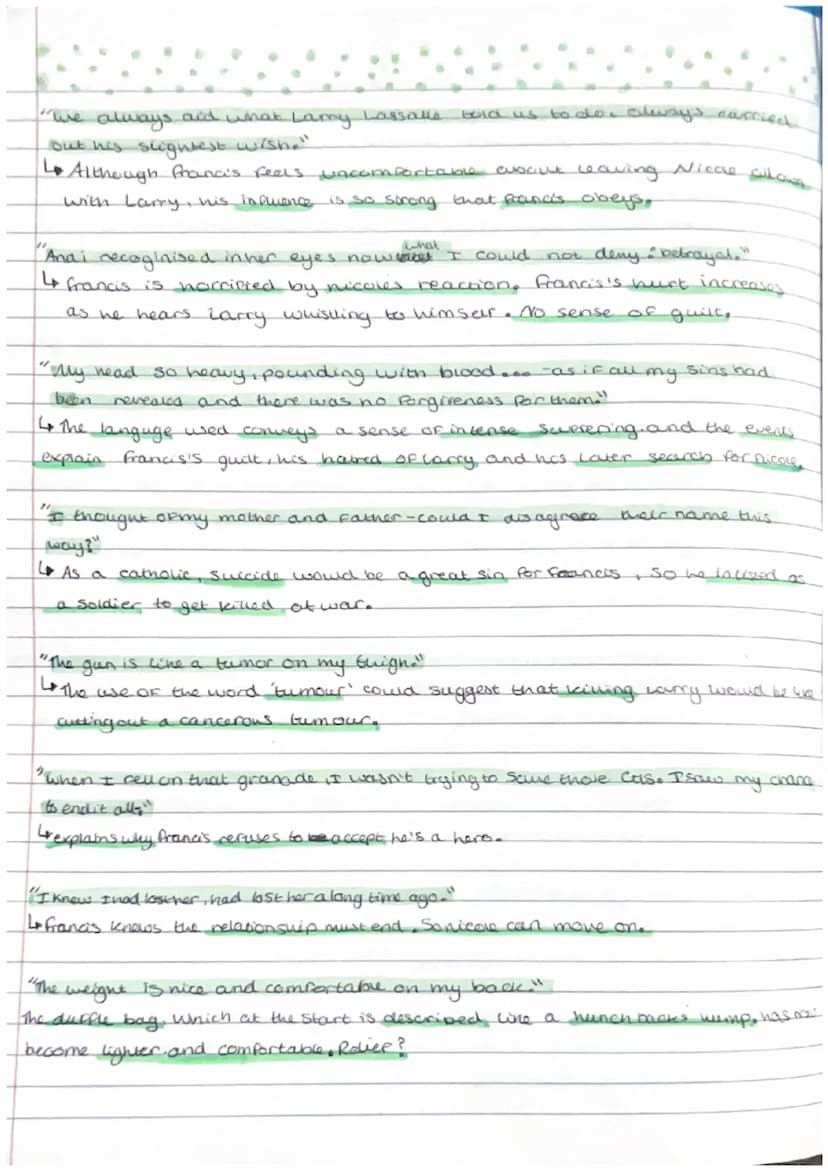 "We always did what Larry Lassalle told us to do. Always carried
out his slightest wish."
↳ Although Francis feels uncomfortable about leaving Nicole alone
with Larry, his influence is so strong that francis obeys.
"And i recoginised in her eyes now what I could not deny: betrayal."
↳ francis is horrified by nicole's reaction. Francis's hurt increases
as he hears Larry whistling to himself. No sense of guilt.
"My head so heavy, pounding with blood... -as if all my sins had
been revealed and there was no forgiveness for them."
↳ The languge used conveys a sense of intense suffering. and the events
explain Francis's guilt, his hatred of larry and his later search for nicole.
"I thought of my mother and father - could I disagrace their name this
way?"
↳ As a catholic, suicide would be a great sin for Francis, so he inlisted as
a soldier to get killed at war.
"The gun is like a tumor on my thigh."
↳ The use of the word 'tumour' could suggest that killing Larry would be like
cutting out a cancerous tumour.
"When I fell on that granade, I wasn't trying to save those GIs. I saw my chance
to end it all."
↳ explains why francis refuses to accept he's a hero.
"I knew I had lost her, had lost her a long time ago."
↳ francis knows the relationship must end. So nicole can move on.
"The weight is nice and comfortable on my back."
The duffle bag, which at the start is described like a hunch backs hump, has now
become lighter and comfortable. Relief?